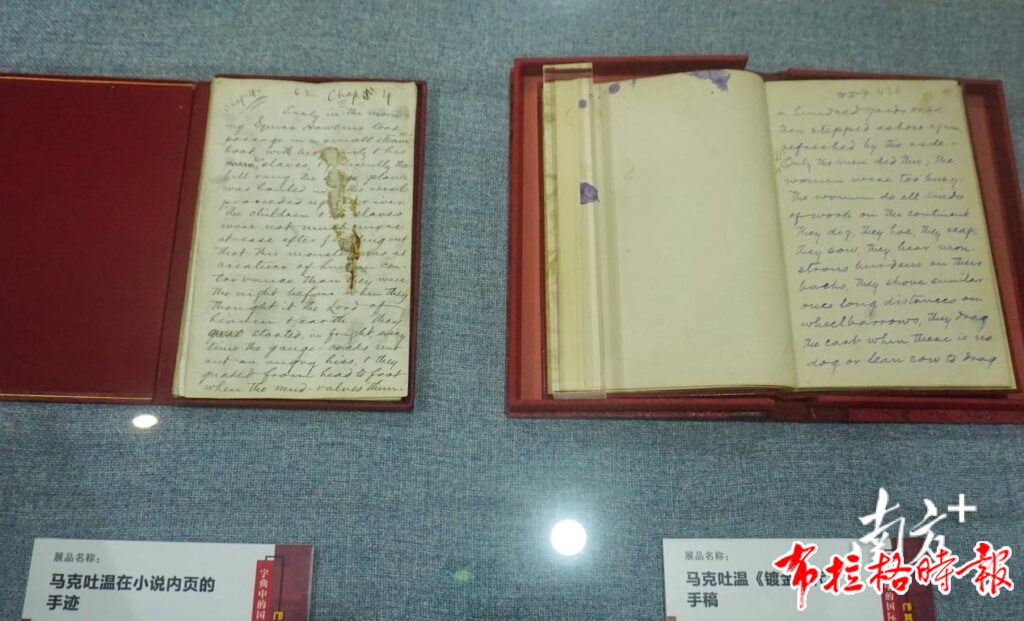 62 Chap 4
Early in the morn-
ing Squire Hawkins took
passage in a small steam
boat, with his family & his
slaves, & presently the
bell rang, the stage plank
was hauled in & the vessel
proceeded up the river.
The children & the slaves
were not much more
at ease after finding out
that this monster was a
creature of human con-
trivance than they were
the night before when they
thought it the Lord of
heaven & earth. They
started, in fright, every
time the gauge-cocks sent
out an angry hiss, & they
quaked from head to foot
when the mud-valves thun-
436
a hundred yards
then stepped ashore again
refreshed by the ride.
Only the men did this, the
women were too busy.
The women do all kinds
of work on the continent
They dig, they hoe, they reap,
they sow, they bear mon-
strous burdens on their
backs, they shove similar
ones long distances on
wheelbarrows, they drag
the cart when there is no
dog or lean cow to drag
展品名称:
马克吐温在小说内页的
手迹
字典中的国
展品名称:
马克吐温《镀金
手稿
的国
南方+
布拉格時報